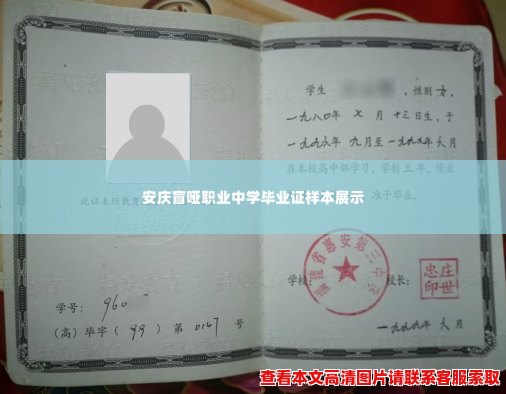 学生 ，性别女，
一九八〇年 七 月 十三日生，于
一九九六年 九月至一九九九年六月
在本校高中部学习，学制三年，修业
此证未经教育
准予毕业。
安庆盲哑职业中学毕业证样本展示
福建省惠安第三中学
学校： 校长：
庄世忠印
学号： 960
（高）毕字（ 99 ）第 0147 号
一九九九年 六 月
查看本文高清图片请联系客服索取